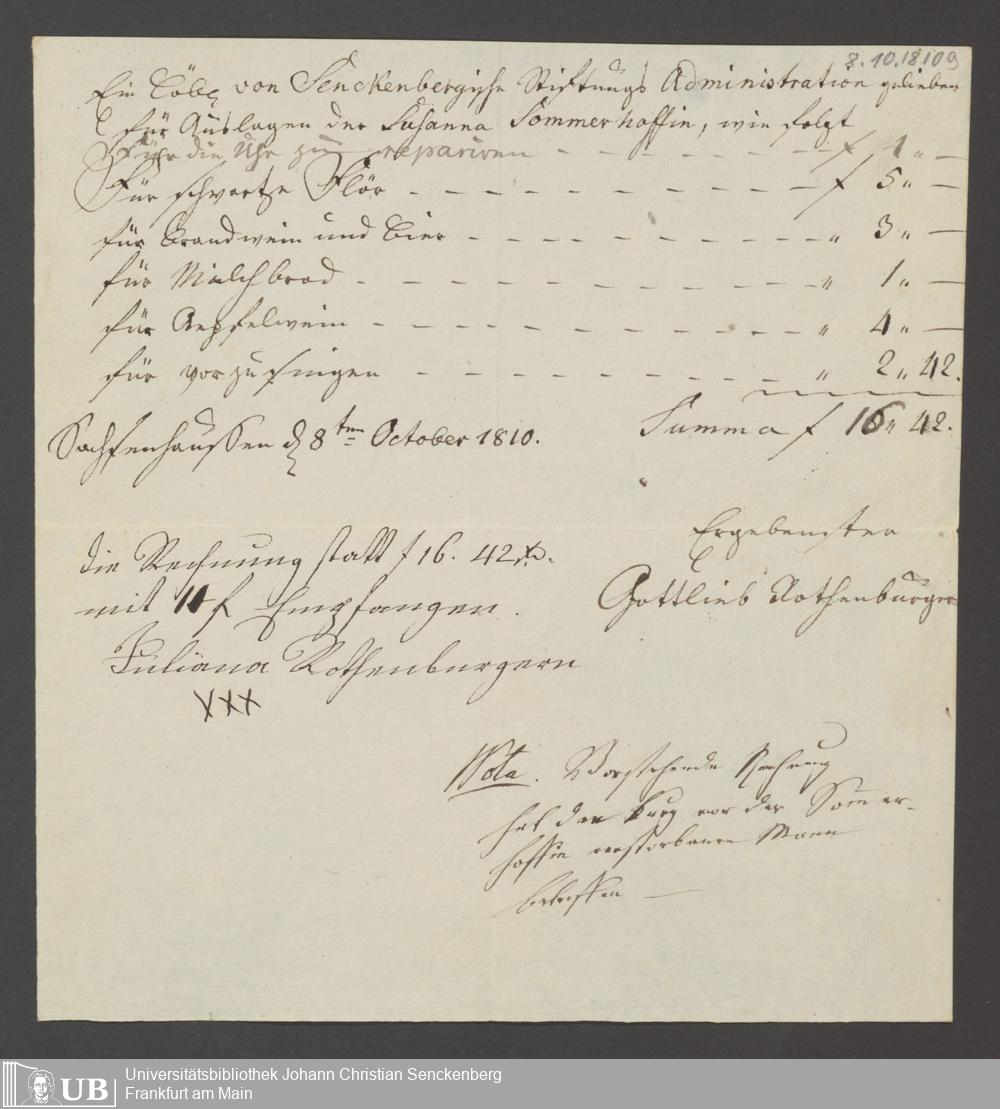 8.10.1810 9
Ein Löbl. von Senckenbergische Stiftungs Administration gelieben
für Auslagen der Susanna Sommerhoffin, wie folgt
Für die Uhr zu repariren - - - - - - - f 1 " —
Für schwartze Flör - - - - - - - - - f 5 " —
für Brandwein und Bier - - - - - - - " 3 " —
für Milchbrod - - - - - - - - - " 1 " —
für Aepfelwein - - - - - - - - - " 4 " —
für vorzusingen - - - - - - - - " 2 " 42.
Summa f 16 " 42.
Sachsenhaussen d 8ten October 1810.
Ergebenster
Gottlieb Rothenburger
die Rechnung statt f 16. 42 xr.
mit 11 f Empfangen.
Juliana Rothenburgern
XXX
Nota. Vorstehende Rechnung
hat den kurz vor der Somer-
hoffin verstorbenen Mann
betroffen —
UB
Universitätsbibliothek Johann Christian Senckenberg
Frankfurt am Main